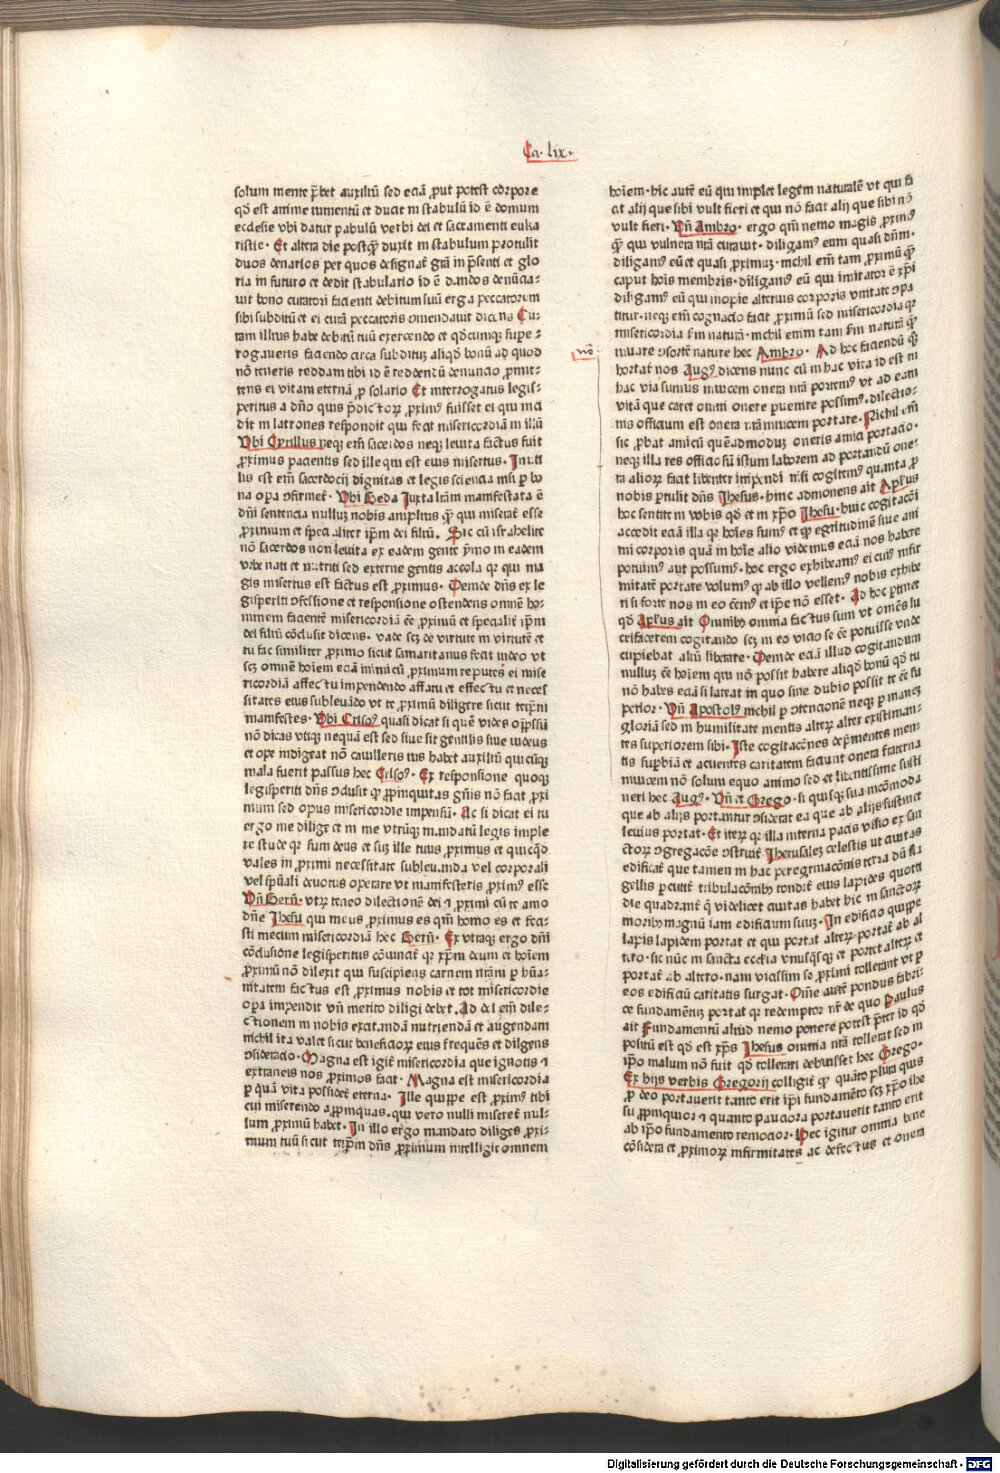 Ca. lix.
solum mente p̄bet auxiliū sed eciā ꝓut potest corpore
qđ est anime iumentū et ducat in stabulū id ē domum
ecclesie vbi datur pabulū verbi dei et sacramenti euka
ristie. Et altera die postq̄ȝ duxit in stabulum protulit
duos denarios per quos designat̄ grā in p̄senti et glo
ria in futuro et dedit stabulario id ē dandos denūcia-
uit bono curatori facienti debitum suū erga peccatorem
sibi subditū et ei curā peccatoris ↄmendauit dicens Cu-
ram illius habe debitū tuū exercendo et qđcumqȝ supe-
rogaueris faciendo circa subditū aliqđ bonū ad quod
nō teneris reddam tibi id ē reddendū denuncio ꝓmit-
tens ei vitam eternā ꝓ solario Et interrogatus legis-
peritus a dn̄o quis p̄dictoꝝ ꝓximꝰ fuisset ei qui inci
dit in latrones respondit qui fecit misericordiā in illū
Vbi Cyrillus neqȝ em̄ sacerdos neqȝ leuita factus fuit
ꝓximus pacientis sed ille qui est eius misertus. Inuti
lis est em̄ sacerdocij dignitas et legis sciencia nisi ꝑ bo
na oꝑa ↄfirmet̄. Vbi Beda Iuxta lr̄am manifestata ē
dn̄i sentencia nulluȝ nobis amplius q̄ȝ qui miseret̄ esse
ꝓximum et specialiter ip̄m dei filiū. Sic cū israhelite
nō sacerdos non leuita ex eadem gente ymo in eadem
vrbe nati et nutriti sed externe gentis accola qr̄ qui ma
gis misertus est factus est ꝓximus. Deinde dn̄s ex le
gisperiti ↄfessione et responsione ostendens omnē ho-
minem facientē misericordiā cē ꝓximū et specialit̄ ip̄m
dei filiū cōclusit dicens. vade scȝ de virtute in virtutē et
tu fac similiter ꝓximo sicut samaritanus fecit iudeo vt
scȝ omnē hoīem eciā inimicū ꝓximum reputes ei mise
ricordiā affectu impendendo affatu et effectu et neces
sitates eius subleuādo vt te ꝓximū diligere sicut teip̄m
manifestes. Vbi Crisoꝰ quasi dicat si quē vides oꝑpssū
nō dicas vtiqȝ nequā est sed siue sit gentilis siue iudeus
et ope indigeat nō cauilleris ius habet auxiliū quicūqȝ
mala fuerit passus hec Crisoꝰ. Ex responsione quoqȝ
legisperiti dn̄s ↄclusit ꝙ ꝓpinquitas gn̄is nō facit ꝓxi
mum sed opus misericordie impensū. Ac si dicat ei tu
ergo me dilige et in me vtrūqȝ mandatū legis imple
re stude qr̄ sum deus et suȝ ille tuus ꝓximus et quicqđ
vales in ꝓximi necessitate subleuanda vel corporali
vel spūali deuotus operare vt manifesteris ꝓximꝰ esse
Vn̄ Bern̄. vtrꝝ teneo dilectionē dei ⁊ ꝓximi cū te amo
dn̄e Ihesu qui meus ꝓximus es qm̄ homo es et feci-
sti mecum misericordiā hec Bern̄. Ex vtraqȝ ergo dn̄i
cōclusione legisperitus cōuincit̄ qr̄ xp̄m deum et hoīem
ꝓximū nō dilexit qui suscipiens carnem nr̄am ꝑ hūa-
nitatem factus est ꝓximus nobis et tot misericordie
oꝑa impendit vn̄ merito diligi debet. Ad dei em̄ dile-
ctionem in nobis excitandā nutriendā et augendam
nichil ita valet sicut beneficioꝝ eius frequēs et diligens
ↄsideracio. Magna est igit̄ misericordia que ignotis ⁊
extraneis nos ꝓximos facit. Magna est misericordia
ꝑ quā vita possidet̄ eterna. Ille quippe est ꝓximꝰ tibi
cui miserendo aꝓpinquas. qui vero nulli miseret̄ nul-
lum ꝓximū habet. In illo ergo mandato diliges ꝓxi-
mum tuū sicut teip̄m dn̄s ꝓximum intelligit omnem
hoīem. hic autē eū qui implet legem naturalē vt qui fa
ciat alij que sibi vult fieri et qui nō faciat alij que sibi nō
vult fieri. Vn̄ Ambro. ergo qm̄ nemo magis ꝓximꝰ
q̄ȝ qui vulnera nr̄a curauit. diligamꝰ eum quasi dn̄m.
diligamꝰ eū et quasi ꝓximuȝ. nichil em̄ tam ꝓximū q̄ȝ
caput hoīs membris. diligamꝰ eū qui imitator ē xp̄i
diligamꝰ eū qui inopie alterius corporis vnitate ↄpa
titur. neqȝ em̄ cognacio facit ꝓximū sed misericordia qr̄
misericordia scd̄m naturā. nichil enim tam scd̄m naturā q̄ȝ
iuuare ↄsortē nature hec Ambro. Ad hoc faciendū q̄ȝ
no.
hortat̄ nos Augꝰ dicens nunc cū in hac vita id est in
hac via sumus inuicem onera nr̄a portemꝰ vt ad eam
vitā que caret omni onere ꝑuenire possimꝰ. dilectio-
nis officium est onera nr̄a inuicem portare. Nichil em̄
sic ꝓbat amicū quēadmoduȝ oneris amici portacio.
neqȝ illa res officio sū istum laborem ad portandū one-
ra alioꝝ faciat libenter impendi nisi cogitemꝰ quanta ꝓ
nobis ꝑtulit dn̄s Ihesus. hinc admonens ait Aplūs
hoc sentite in vobis qđ et in xp̄o Ihesu. huic cogitacōi
accedit eciā illa qr̄ hoīes sumꝰ et ꝙ egritudinē siue ani
mi corporis quā in hoīe alio videmus eciā nos habere
potuimꝰ aut possumꝰ. hoc ergo exhibeamꝰ ei cuiꝰ infir
mitatē portare volumꝰ qđ ab illo vellemꝰ nobis exhibe
ri si forte nos in eo cēmꝰ et ip̄e nō esset. Ad hoc ꝑtinet
qđ Aplūs ait Omnibꝰ omnia factus sum vt omēs lu
crifacerem cogitando scȝ in eo vicio se cē potuisse vnde
cupiebat aliū liberare. Deinde eciā illud cogitandum
nulluȝ cē hoīem qui nō possit habere aliqđ bonū qđ tu
nō habes eciā si lateat in quo sine dubio possit te cē su
perior. Vn̄ Apostolꝰ nichil ꝑ ↄtencionē neqȝ ꝑ inanem
gloriā sed in humilitate mentis alteꝝ alter existiman-
tes superiorem sibi. Iste cogitacōnes dep̄mentes men-
tis suꝑbiā et acuentes caritatem faciunt onera fraterna
inuicem nō solum equo animo sed et libentissime susti
neri hec Augꝰ. Vn̄ et Grego. si quisqȝ sua incōmoda
que ab alijs portantur ↄsiderat ea que ab alijs sustinet
leuius portat. Et iteꝝ qr̄ illa interna pacis visio ex san
ctoꝝ ↄgregacōe ↄstruit̄ Iherusalem celestis vt ciuitas
edificat̄ que tamen in hac peregrinacōnis terra dū fla
gellis ꝑcutit̄ tribulacōnibꝰ tondit̄ eius lapides quoti
die quadrant̄ q̄ videlicet ciuitas habet hic in sanctoꝝ
moribꝰ magnū iam edificium suuȝ. In edificio quippe
lapis lapidem portat et qui portat alteꝝ portat̄ ab al
tero. sic nūc in sancta ecclīa vnusq̄sqȝ et portet alteꝝ et
portat̄ ab altero. nam vicissim se ꝓximi tollerant vt ꝑ
eos edificiū caritatis surgat. Om̄e autē pondus fabri-
ce fundamētuȝ portat qr̄ redemptor nr̄ de quo Paulus
ait Fundamentū aliud nemo ponere potest p̄ter id qđ
positū est qđ est xp̄s Ihesus omnia nr̄a tollerat sed in
ip̄o malum nō fuit qđ tollerari debuisset hec Grego.
Ex hijs verbis Gregorij colligit̄ ꝙ quāto plura quis
ꝓ deo portauerit tanto erit ip̄i fundamēto scȝ xp̄o ihe
su ꝓpinquior ⁊ quanto pauciora portauerit tanto erit
ab ip̄o fundamento remocior. Hec igitur omnia bene
cōsidera et ꝓximoꝝ infirmitates ac defectus et onera
Digitalisierung gefördert durch die Deutsche Forschungsgemeinschaft - DFG